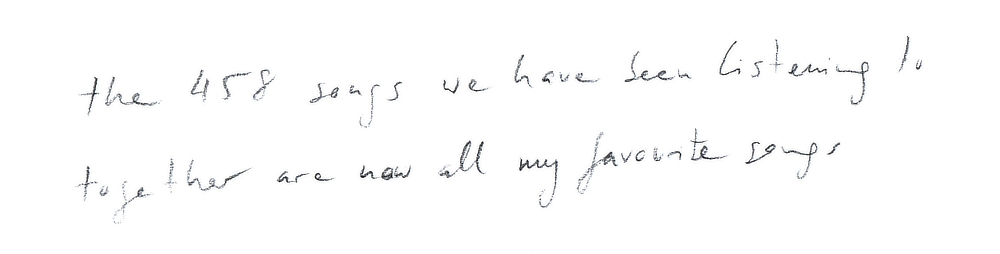 the 458 songs we have been listening to
together are now all my favourite songs